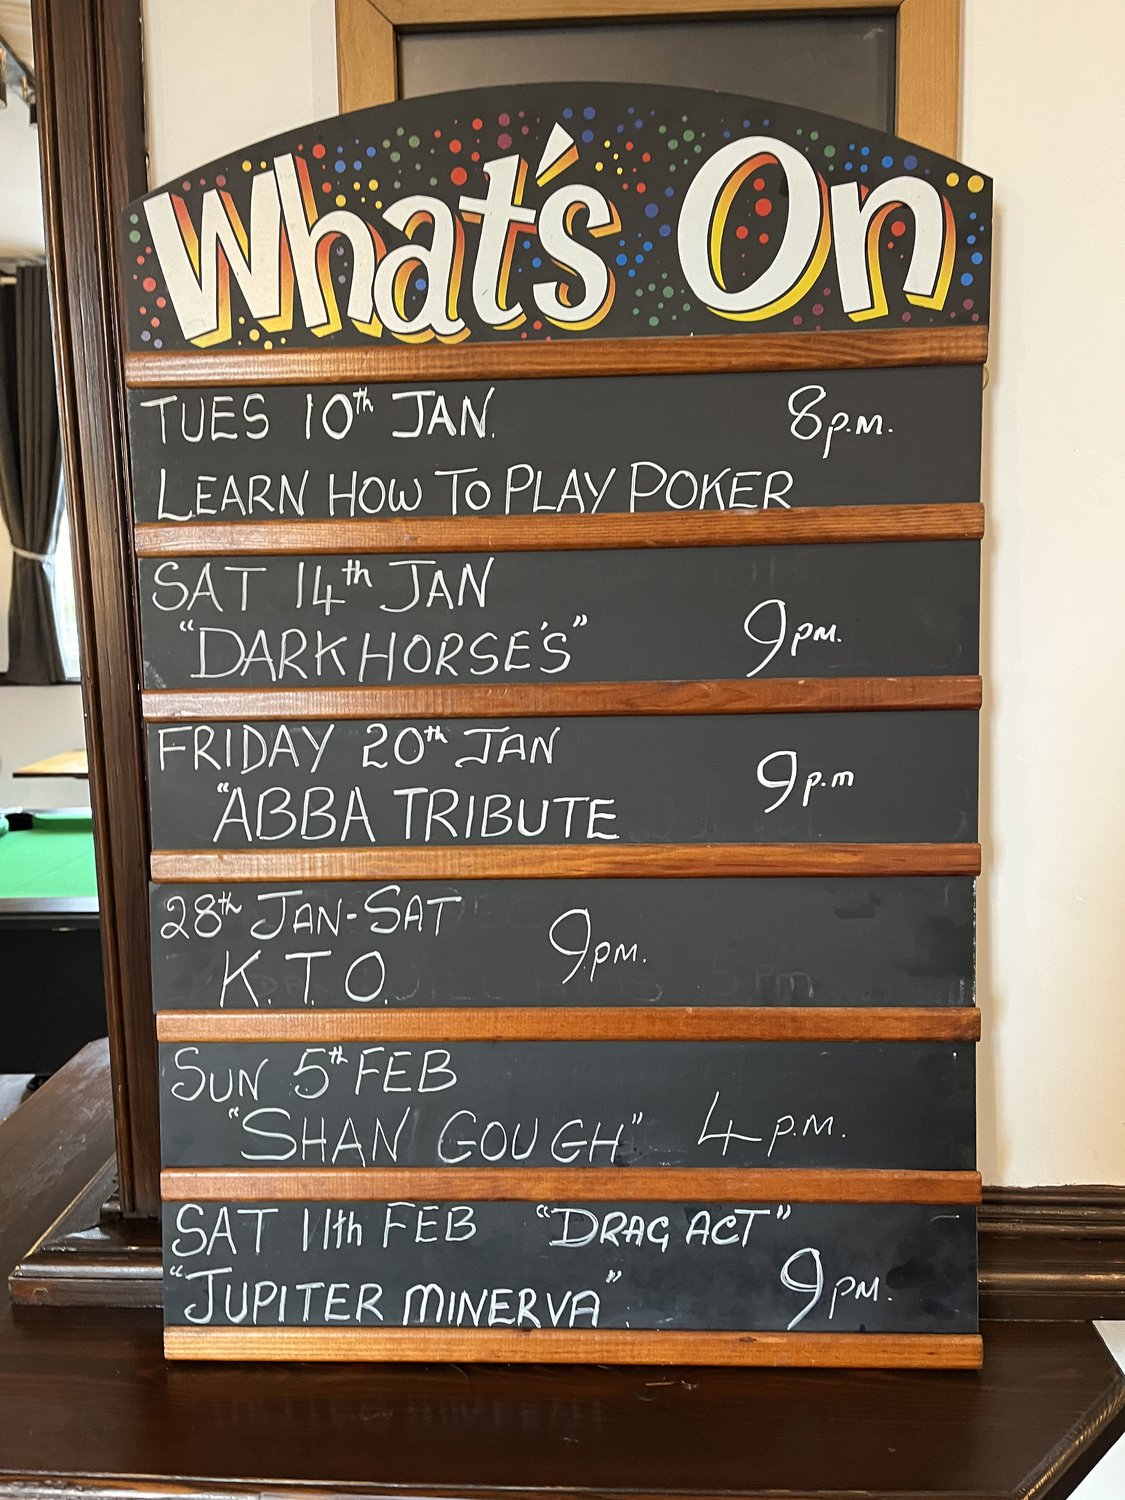 What's On
TUES 10th JAN. 8p.m.
LEARN HOW TO PLAY POKER
SAT 14th JAN
"DARK HORSE'S" 9pm.
FRIDAY 20th JAN
"ABBA TRIBUTE 9p.m
28th JAN-SAT
K.T.O. 9pm.
SUN 5th FEB
"SHAN GOUGH" 4 p.m.
SAT 11th FEB "DRAG ACT"
"JUPITER MINERVA" 9pm.